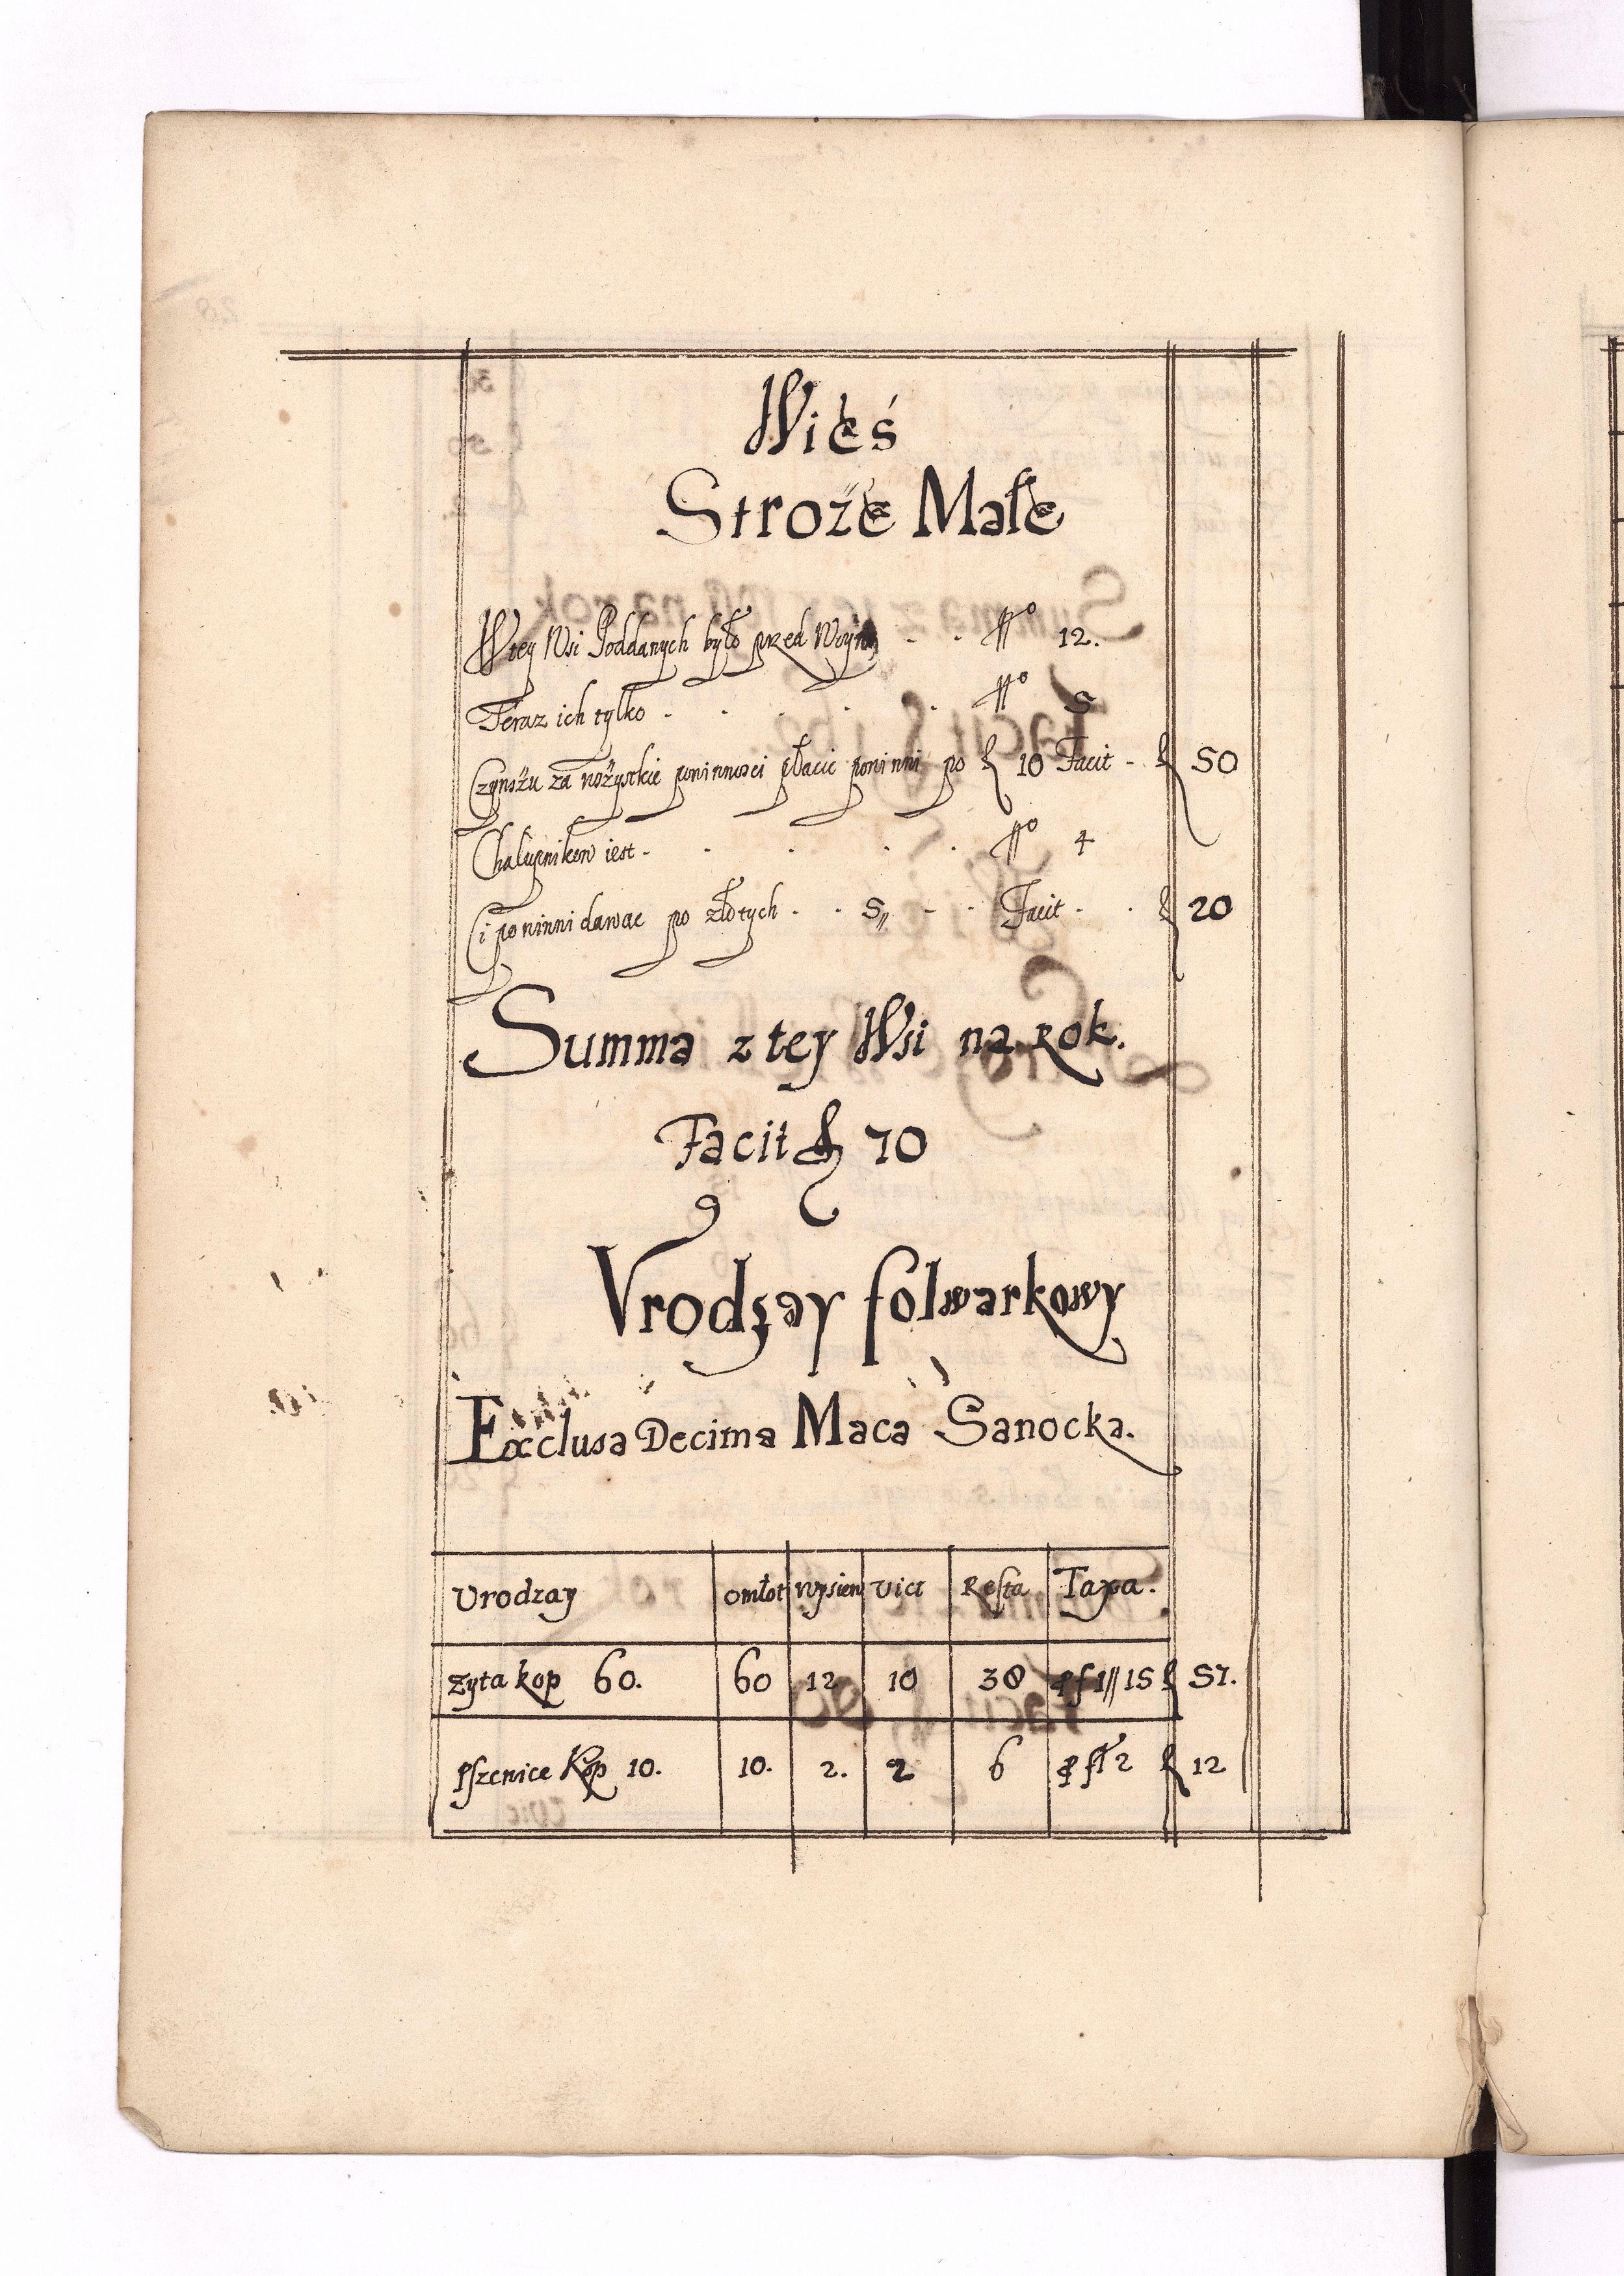 Wieś
Stroże Małe
W tey Wsi Poddanych było przed Woyną . . No 12.
Teraz ich tylko . . . . . No 5
Czynszu za wszystkie powinnosci płacic powinni po fl 10 Facit - fl 50
Chalupnikow iest . . . . . No 4
Ci powinni dawac po złotych . . 5 - - Facit . . fl 20
Summa z tey Wsi na Rok.
Facit fl 70
Vrodzay folwarkowy
Exclusa Decima Maca Sanocka.
Urodzay omłot wysiew vict Resta Taxa.
zyta kop 60. 60 12 10 38 p f 1 // 15 fl 57.
Pszenice Kop 10. 10. 2. 2 6 p fł 2 fl 12